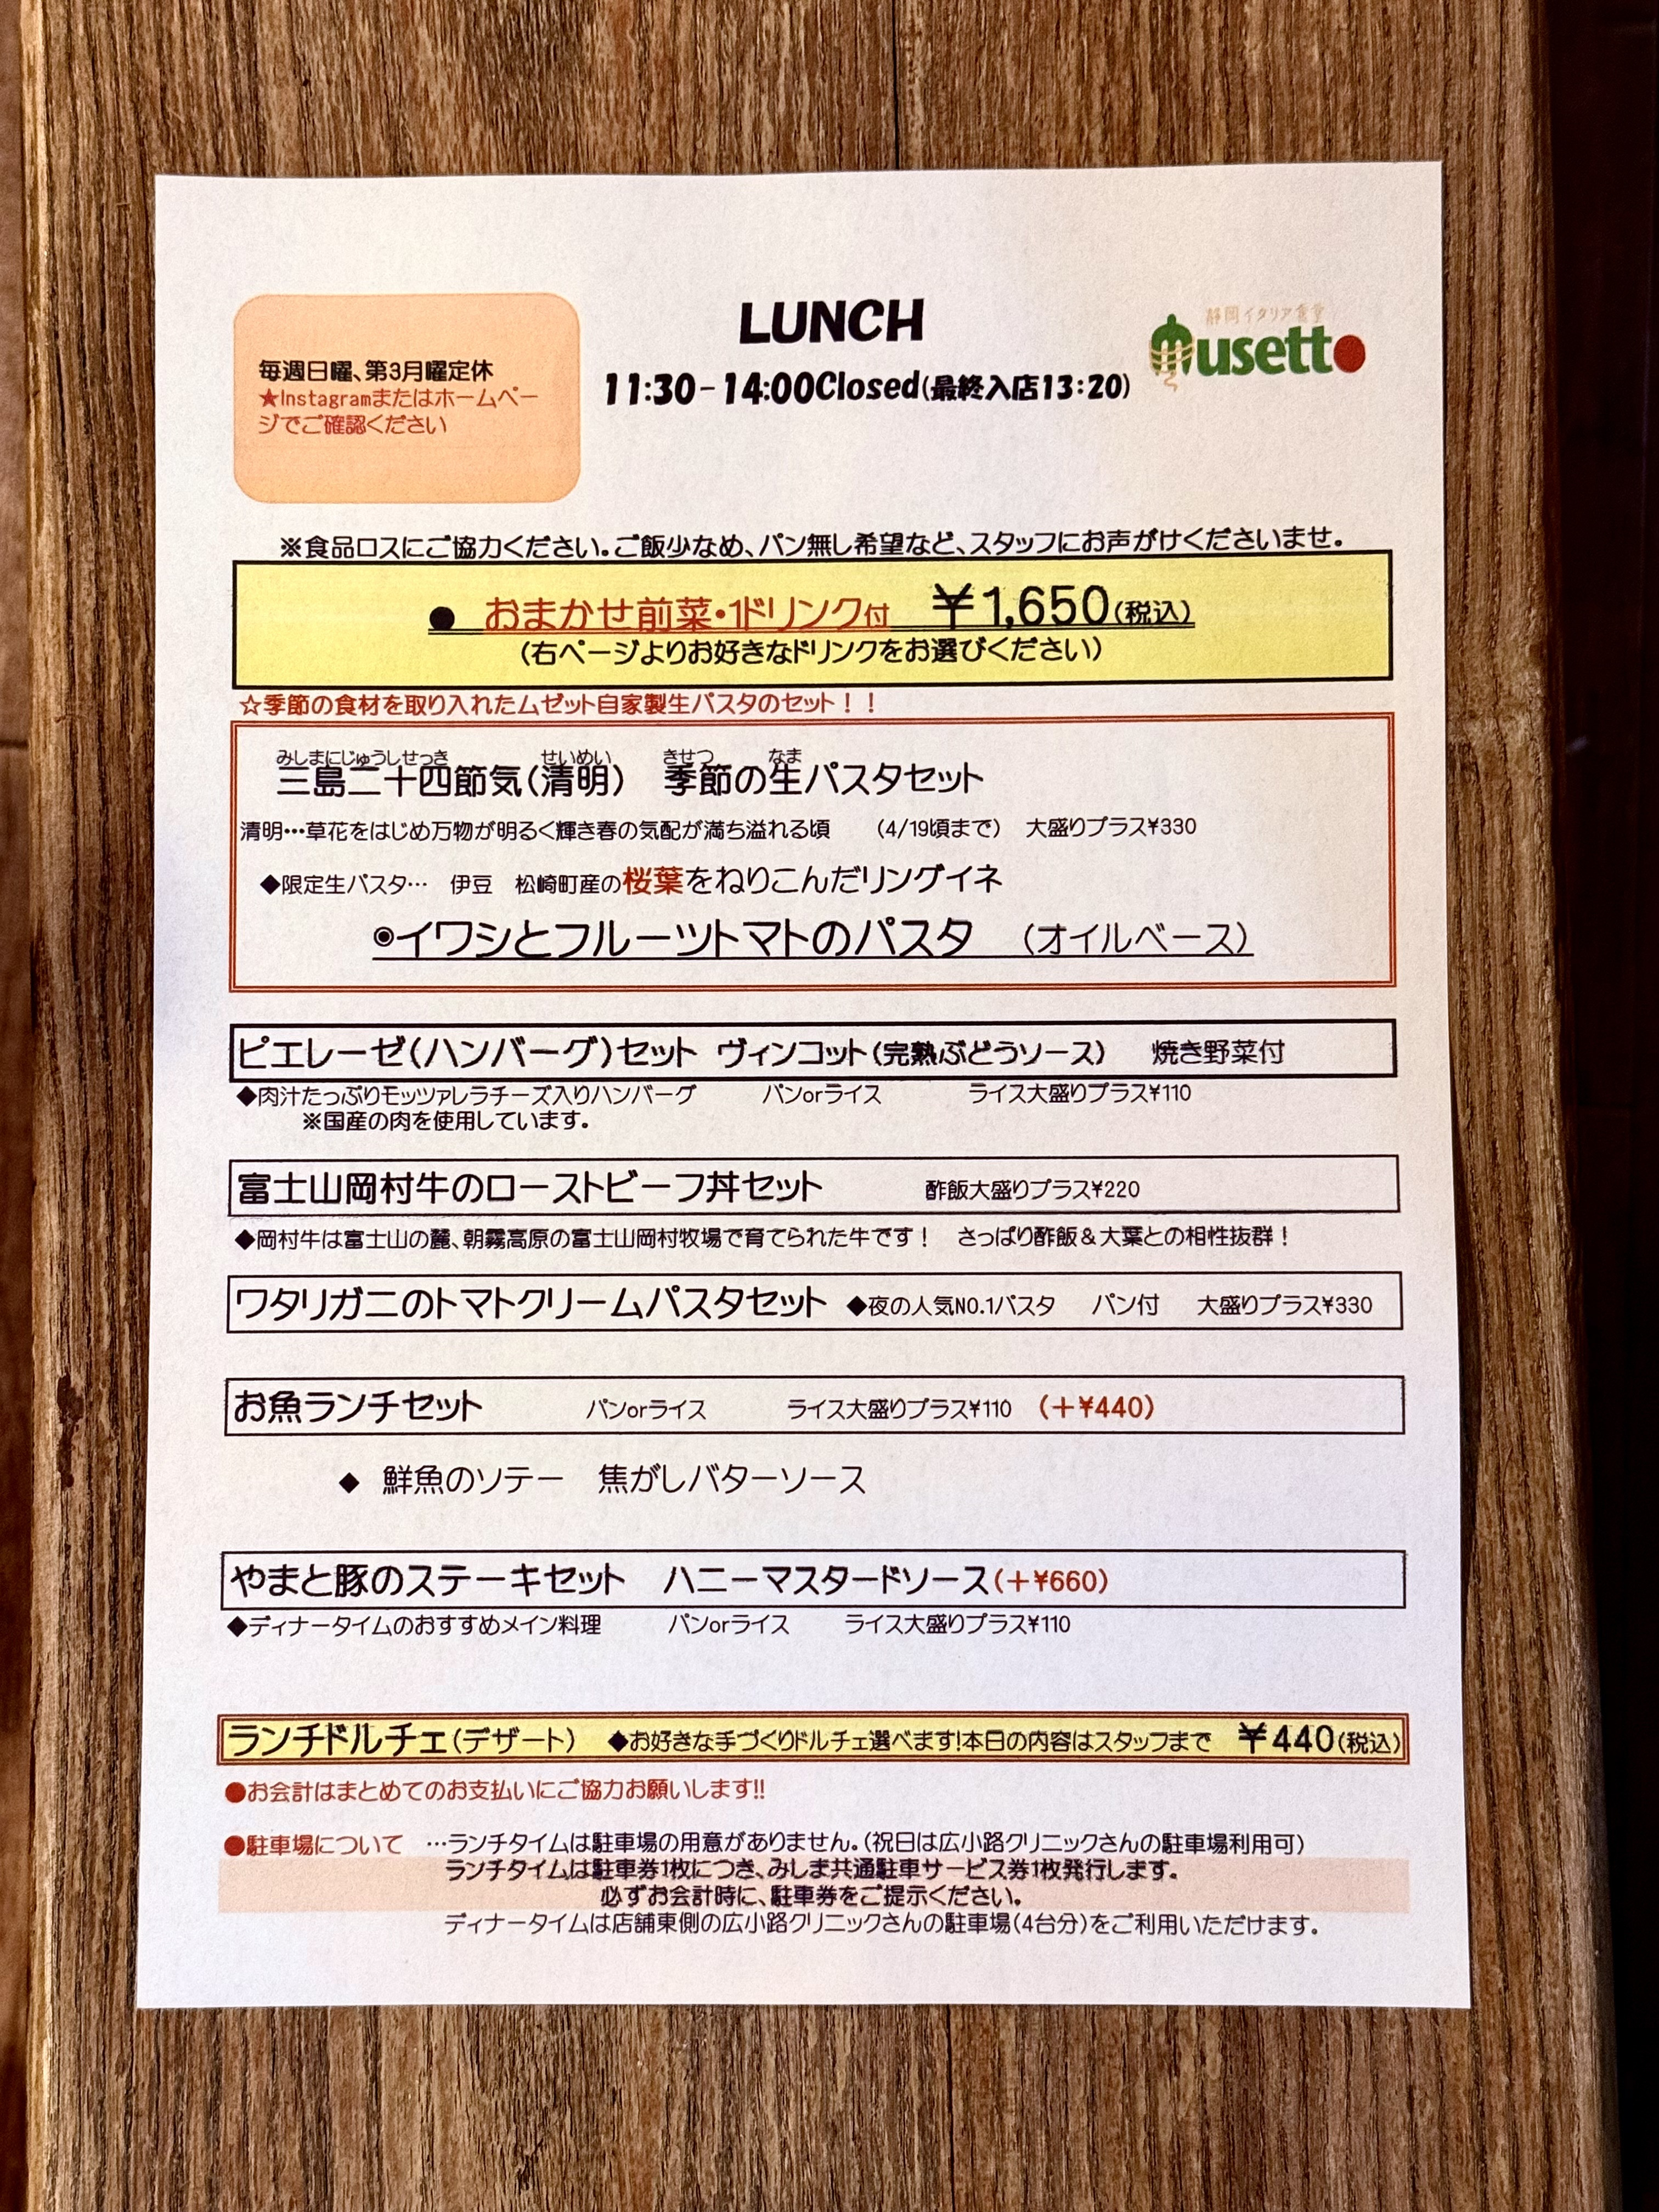 LUNCH
11:30-14:00Closed(最終入店13:20)
静岡イタリア食堂
musetto
毎週日曜、第3月曜定休
★Instagramまたはホームペー
ジでご確認ください
※食品ロスにご協力ください。ご飯少なめ、パン無し希望など、スタッフにお声がけくださいませ。
● おまかせ前菜・1ドリンク付 ￥1,650(税込)
(右ページよりお好きなドリンクをお選びください)
☆季節の食材を取り入れたムゼット自家製生パスタのセット！！
みしまにじゅうしせっき せいめい きせつ なま
三島二十四節気(清明) 季節の生パスタセット
清明…草花をはじめ万物が明るく輝き春の気配が満ち溢れる頃 (4/19頃まで) 大盛りプラス¥330
◆限定生パスタ… 伊豆 松崎町産の桜葉をねりこんだリングイネ
◉イワシとフルーツトマトのパスタ (オイルベース)
ピエレーゼ(ハンバーグ)セット ヴィンコット(完熟ぶどうソース) 焼き野菜付
◆肉汁たっぷりモッツァレラチーズ入りハンバーグ パンorライス ライス大盛りプラス¥110
※国産の肉を使用しています。
富士山岡村牛のローストビーフ丼セット 酢飯大盛りプラス¥220
◆岡村牛は富士山の麓、朝霧高原の富士山岡村牧場で育てられた牛です！ さっぱり酢飯＆大葉との相性抜群！
ワタリガニのトマトクリームパスタセット ◆夜の人気NO.1パスタ パン付 大盛りプラス¥330
お魚ランチセット パンorライス ライス大盛りプラス¥110 (＋¥440)
◆ 鮮魚のソテー 焦がしバターソース
やまと豚のステーキセット ハニーマスタードソース(＋¥660)
◆ディナータイムのおすすめメイン料理 パンorライス ライス大盛りプラス¥110
ランチドルチェ(デザート) ◆お好きな手づくりドルチェ選べます!本日の内容はスタッフまで ￥440(税込)
●お会計はまとめてのお支払いにご協力お願いします!!
●駐車場について …ランチタイムは駐車場の用意がありません。(祝日は広小路クリニックさんの駐車場利用可)
ランチタイムは駐車券1枚につき、みしま共通駐車サービス券1枚発行します。
必ずお会計時に、駐車券をご提示ください。
ディナータイムは店舗東側の広小路クリニックさんの駐車場(4台分)をご利用いただけます。